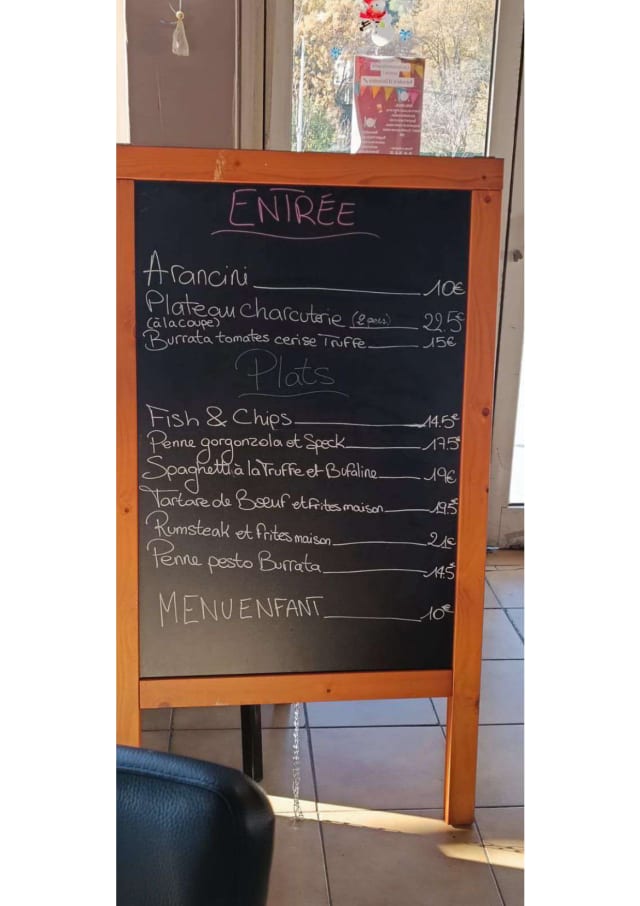 ENTRÉE
Arancini 10€
Plateau charcuterie (2 pers) 22.5€
(à la coupe)
Burrata tomates cerise Truffe 15€
Plats
Fish & Chips 14.5€
Penne gorgonzola et Speck 17.5€
Spaghetti à la Truffe et Bufaline 19€
Tartare de Boeuf et frites maison 19.5€
Rumsteak et frites maison 21€
Penne pesto Burrata 14.5€
MENU ENFANT 10€